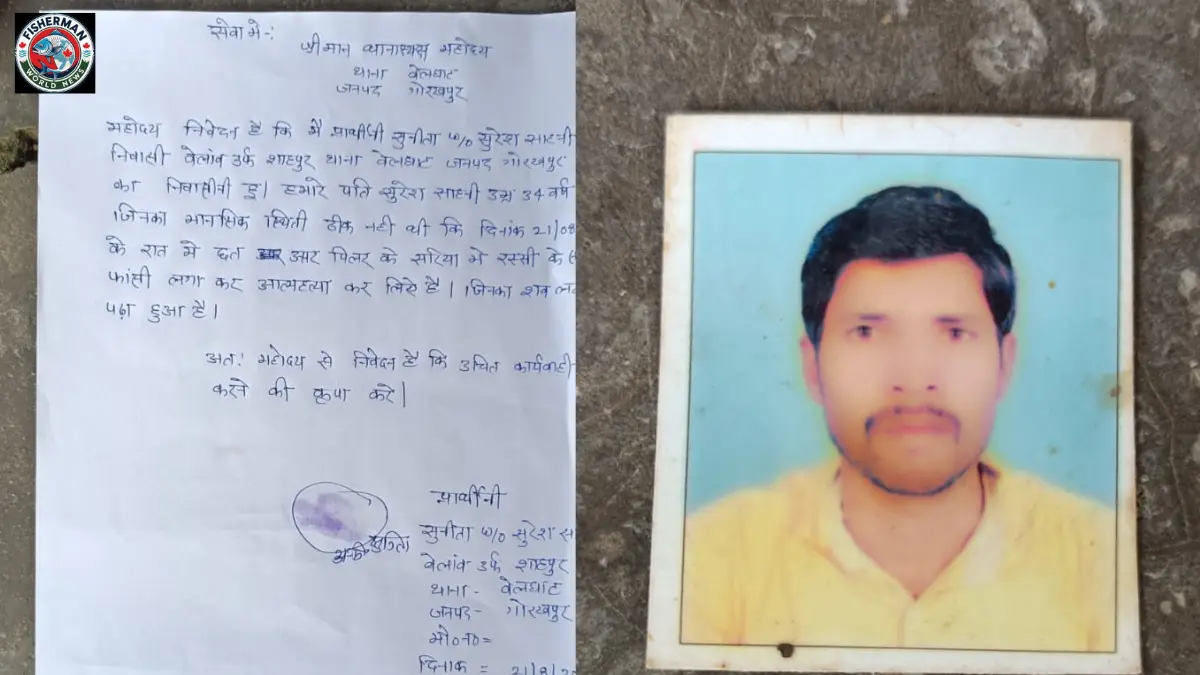 FISHERMAN
WORLD NEWS
सेवा मे-:
श्रीमान थानाध्यक्ष महोदय
थाना वेलघाट
जनपद गोरखपुर
महोदय निवेदन है कि मै प्रार्थीनी सुनीता w/o सुरेश साहनी
निवासी वेलांव उर्फ शाहपुर थाना वेलघाट जनपद गोरखपुर
का निवासीनी हू। हमारे पति सुरेश साहनी उम्र 34 वर्ष
जिनका मानसिक स्थिती ठीक नही थी कि दिनांक 21/08
के रात मे छत पिलर के सरिया मे रस्सी के
फांसी लगा कर आत्महत्या कर लिये है। जिनका शव
पढ़ा हुआ है।
अत: महोदय से निवेदन है कि उचित कार्यवाही
करने की कृपा करे।
प्रार्थीनी
सुनीता w/o सुरेश सा
सुनिता
वेलांव उर्फ शाहपुर
थाना - वेलघाट
जनपद - गोरखपुर
मो०न० =
दिनाक = 21/8/20